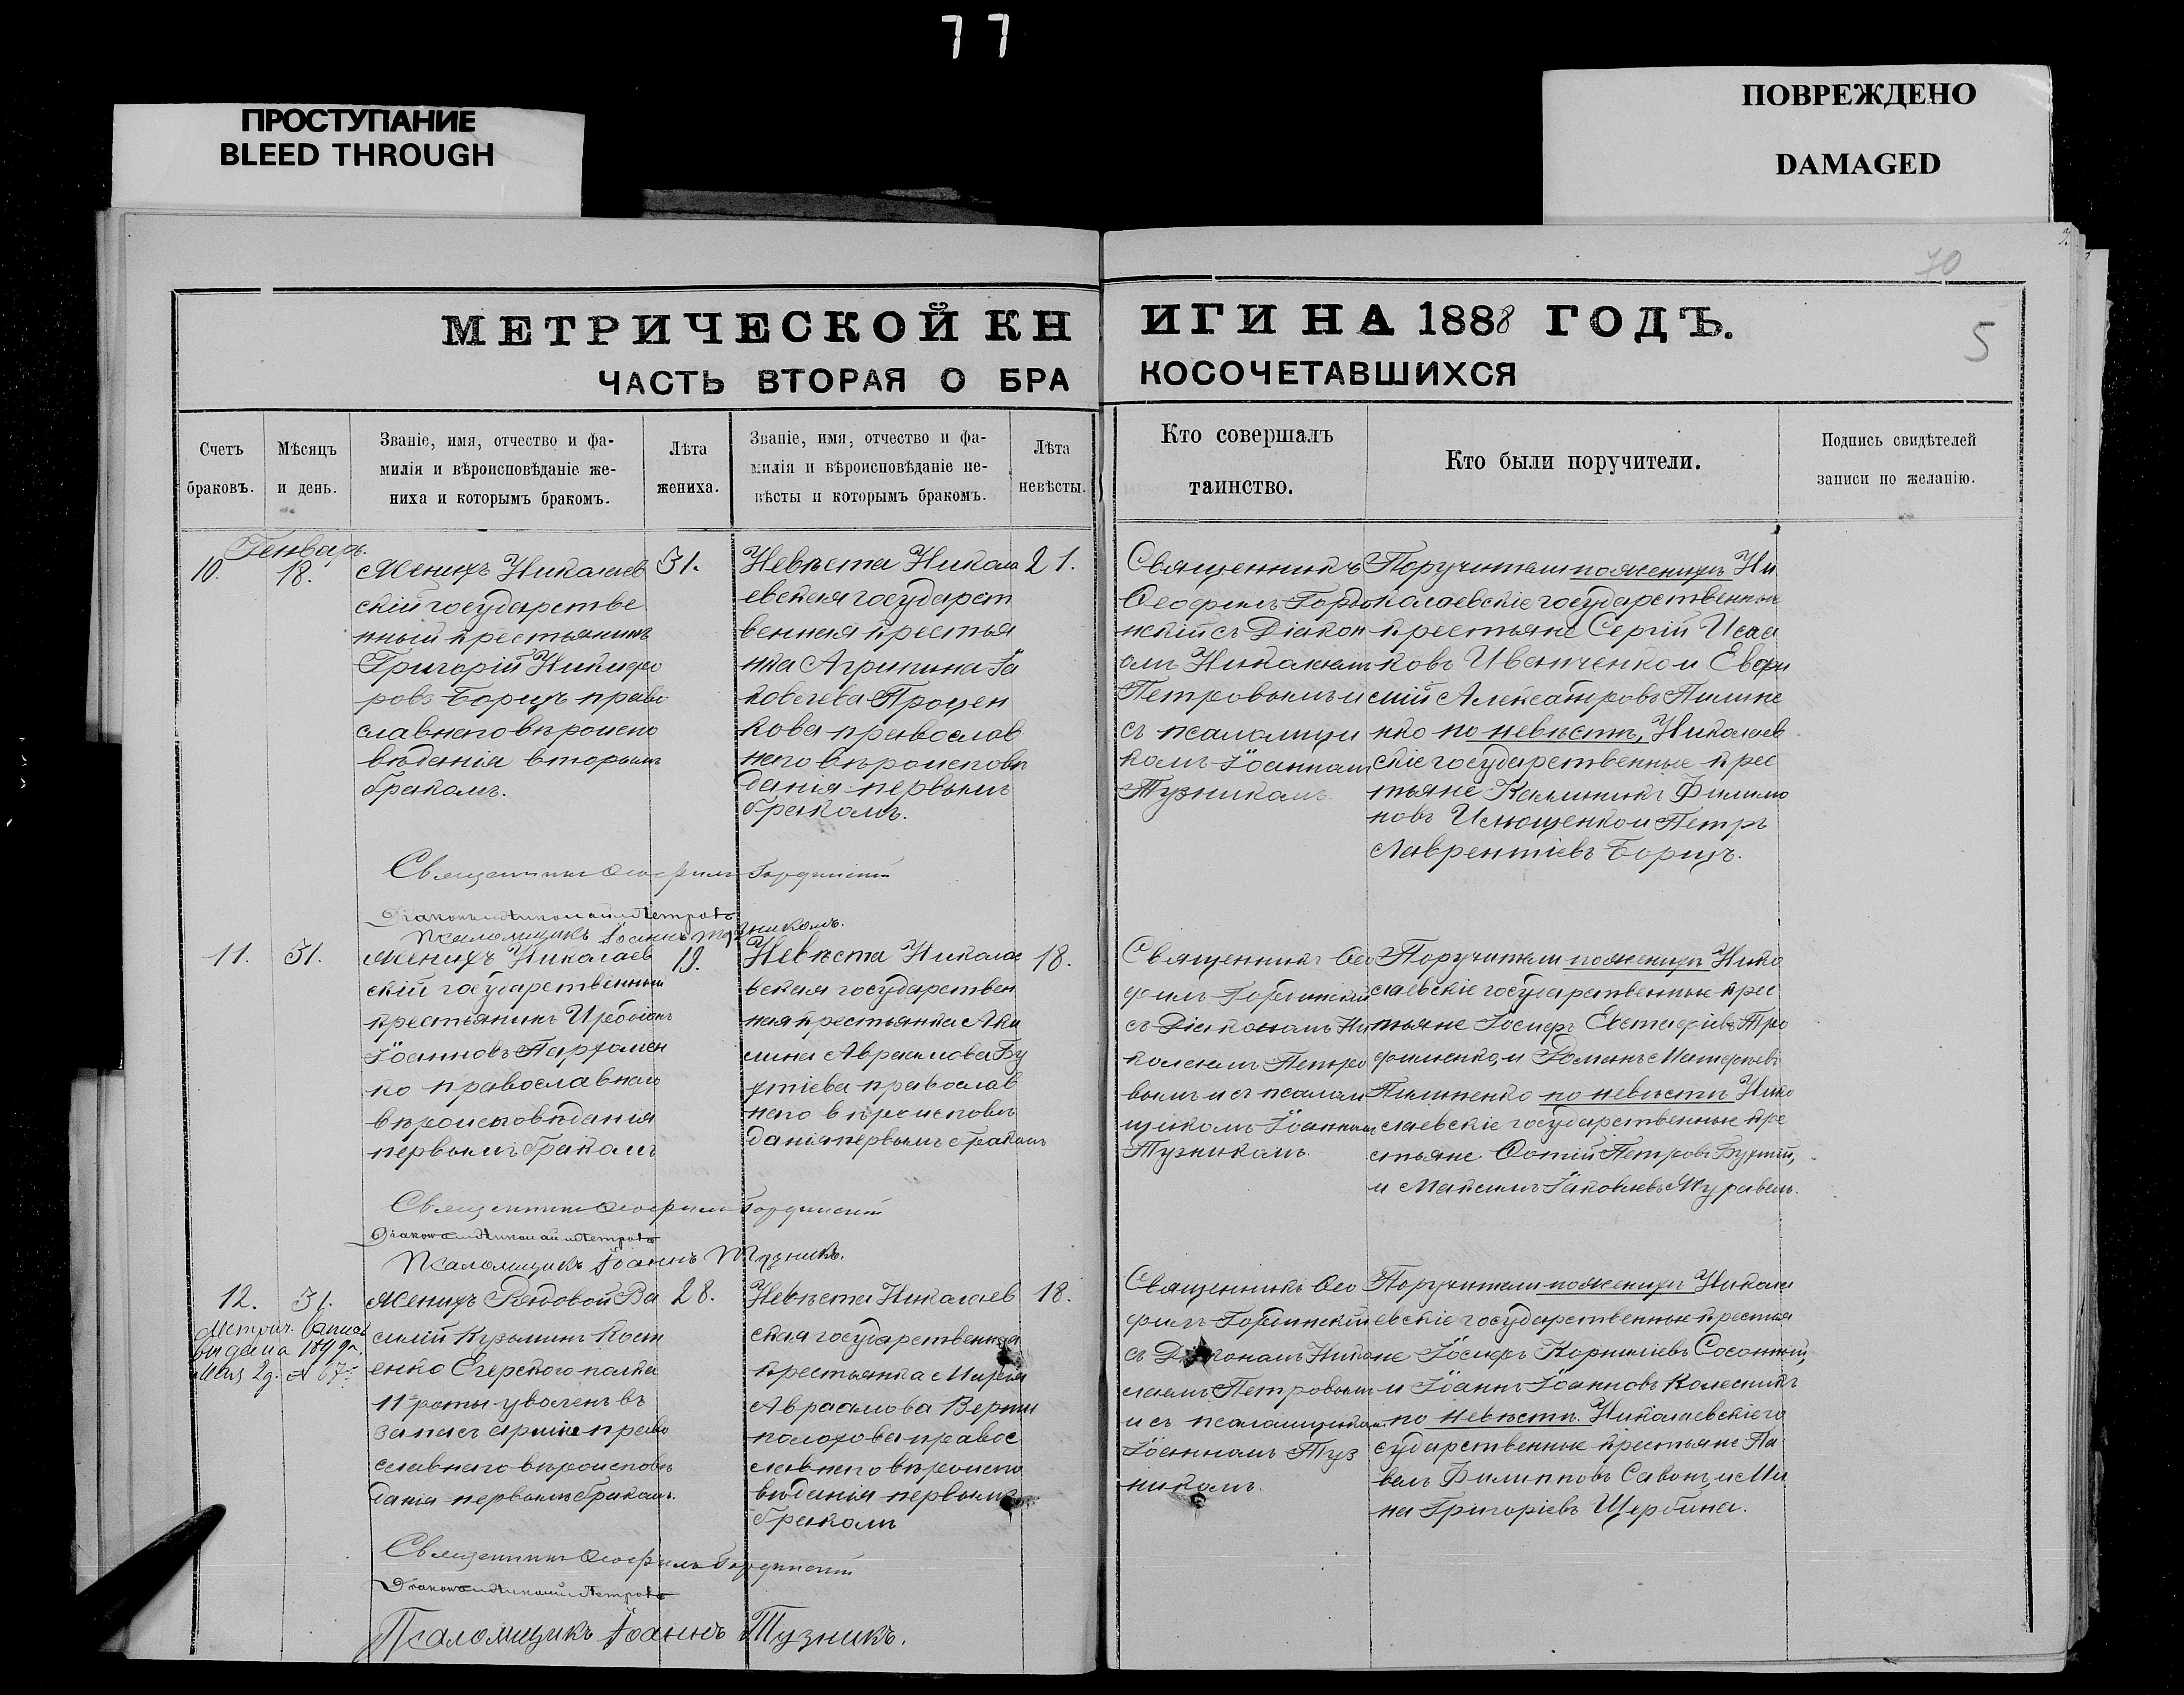 77
ПРОСТУПАНИЕ
BLEED THROUGH
ПОВРЕЖДЕНО
DAMAGED
70
5
МЕТРИЧЕСКОЙ КН
ИГИ НА 1888 ГОДЪ.
ЧАСТЬ ВТОРАЯ О БРА
КОСОЧЕТАВШИХСЯ
Счетъ
браковъ.
Мѣсяцъ
и день.
Званіе, имя, отчество и фа-
милія и вѣроисповѣданіе же-
ниха и которымъ бракомъ.
Лѣта
жениха.
Званіе, имя, отчество и фа-
милія и вѣроисповѣданіе не-
вѣсты и которымъ бракомъ.
Лѣта
невѣсты.
Кто совершалъ
таинство.
Кто были поручители.
Подпись свидѣтелей
записи по желанію.
Генварь.
10.
18.
Женихъ Николаев
скій государстве
нный крестьянинъ
Григорій Никифо
ровъ Борицъ право
славнаго вѣроиспо
вѣданія вторымъ
бракомъ.
31.
Невѣста Никола
евская государст
венная крестья
нка Агрипина Іа
ковлева Процен
кова православ
наго вѣроисповѣ
данія первымъ
бракомъ.
21.
Священникъ
Ѳеофилъ Гордо
нскій съ Діакон
омъ Николаемъ
Петровымъ и
съ псаломщи
комъ Іоанномъ
Тузникомъ.
Поручители по женихѣ Ни
колаевскіе государственные
крестьяне Сергій Исаа
ковъ Ивенченко и Евфи
мій Александровъ Пилипе
нко по невѣстѣ, Николаев
скіе государственные крес
тьяне Калинникъ Филимо
новъ Илющенко и Петръ
Лаврентіевъ Борицъ.
Священникъ Ѳеофилъ Гординскій
Діаконъ Николай Петровъ
Псаломщикъ Іоаннъ Тузникъ.
11.
31.
Женихъ Николаев
скій государственный
крестьянинъ
Іоанновъ Пархомен
ко православнаго
вѣроисповѣданія
первымъ бракомъ
19.
Невѣста Николае
вская государствен
ная крестьянка Аку
лина Авраамова Бу
хтіева православ
наго вѣроисповѣ
данія первымъ бракомъ
18.
Священникъ Ѳео
филъ Гординскій
съ Діакономъ Ни
колаемъ Петро
вымъ и съ псалом
щикомъ Іоанномъ
Тузникомъ.
Поручители по женихѣ Нико
лаевскіе государственные крес
тьяне Іосифъ Евстафіевъ Тро
фименко, и Романъ Матфѣевъ
Пилипенко по невѣстѣ Нико
лаевскіе государственные кре
стьяне Фотій Петровъ Бухтій,
и Максимъ Іаковлевъ Журавель.
Священникъ Ѳеофилъ Гординскій
Діаконъ Николай Петровъ
Псаломщикъ Іоаннъ Тузникъ.
12.
31.
Метрич. выпись
выдана 1899 г.
Мая 2 д. № 67
Женихъ Рядовой Ва
силій Кузьминъ Кост
енко полка
11 роты уволенъ въ
запасъ арміи право
славнаго вѣроисповѣ
данія первымъ бракомъ.
28.
Невѣста Николаев
ская государственная
крестьянка Марія
Авраамова Верти
полохова правос
лавнаго вѣроиспо
вѣданія первымъ
бракомъ
18.
Священникъ Ѳео
филъ Гординскій
съ Діакономъ Нико
лаемъ Петровымъ
и съ псаломщикомъ
Іоанномъ Туз
никомъ.
Поручители по женихѣ Никола
евскіе государственные крестья
не Іосифъ Корниліевъ Сосонный,
и Іоаннъ Іоанновъ Колесникъ
по невѣстѣ. Николаевскіе го
сударственные крестьяне Па
велъ Филипповъ Савонъ, и Ми
на Григоріевъ Щербина.
Священникъ Ѳеофилъ Гординскій
Діаконъ Николай Петровъ
Псаломщикъ Іоаннъ Тузникъ.